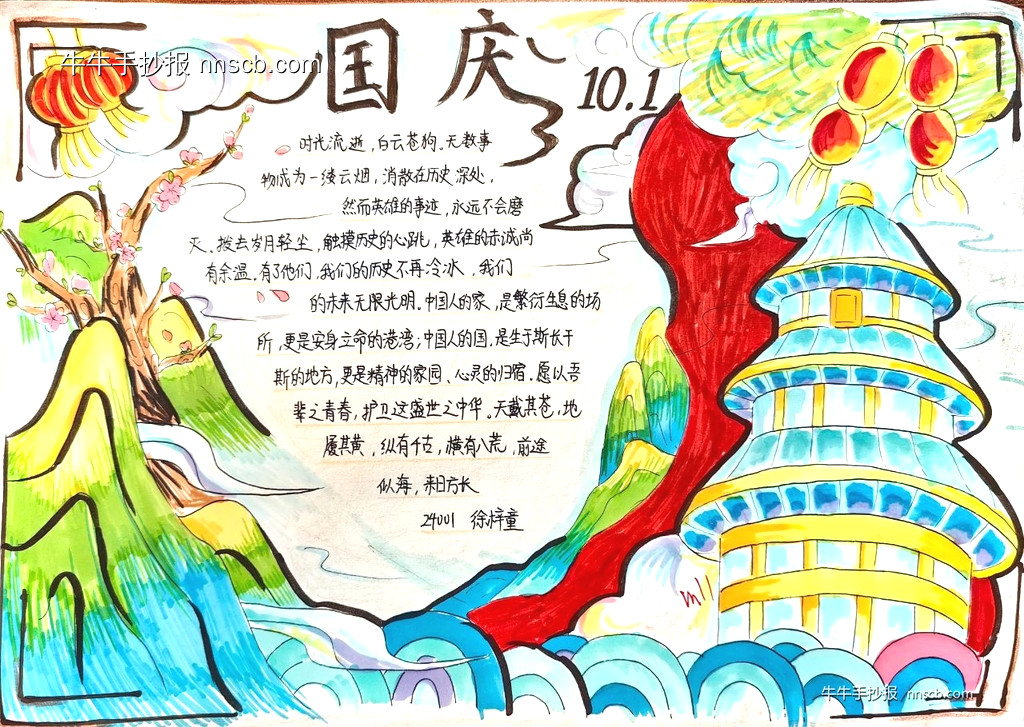 牛牛手抄报 nnscb.com
国庆
10.1
时光流逝，白云苍狗。无数事
物成为一缕云烟，消散在历史深处，
然而英雄的事迹，永远不会磨
灭。拨去岁月轻尘，触摸历史的心跳，英雄的赤诚尚
有余温。有了他们，我们的历史不再冷冰，我们
的未来无限光明。中国人的家，是繁衍生息的场
所，更是安身立命的港湾；中国人的国，是生于斯长于
斯的地方，更是精神的家园、心灵的归宿。愿以吾
辈之青春，护卫这盛世之中华。天戴其苍，地
履其黄，纵有千古，横有八荒，前途
似海，来日方长
24001 徐梓童
牛牛手抄报 nnscb.com